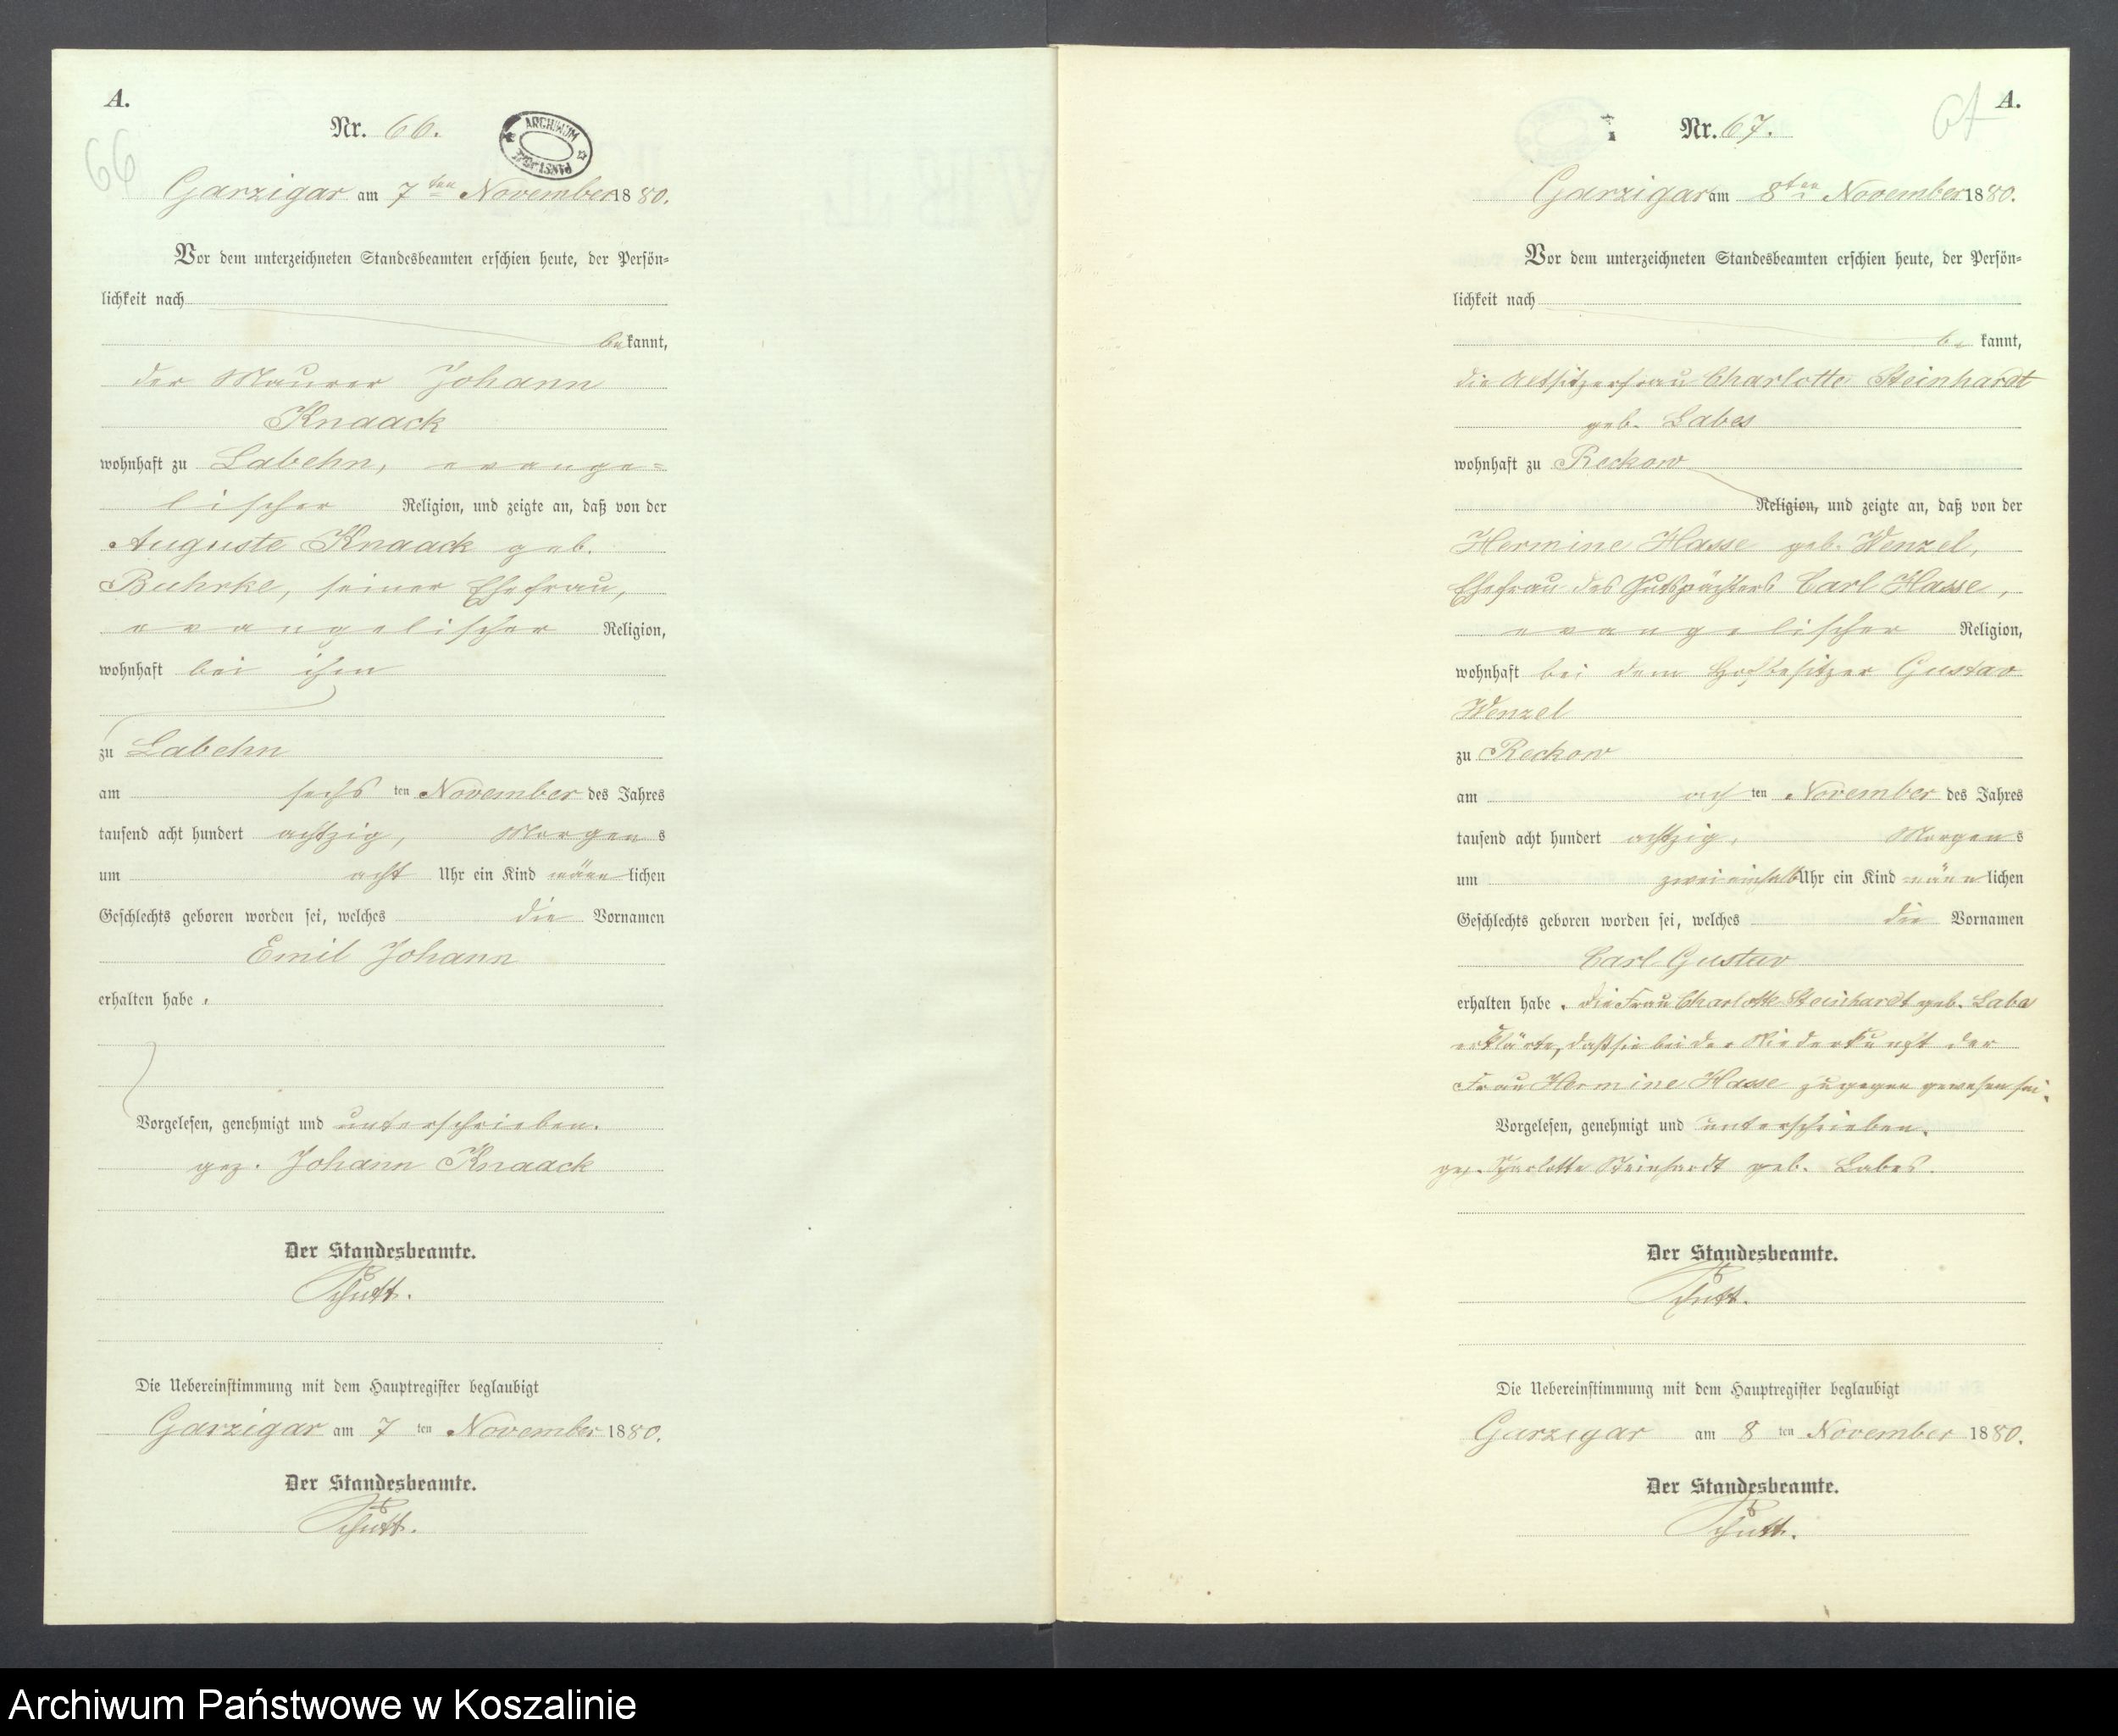 A.
66
Nr. 66.
ARCHIWUM PAŃSTWOWE
Garzigar am 7ten November 1880.
Vor dem unterzeichneten Standesbeamten erschien heute, der Persön=
lichkeit nach
bekannt,
der Maurer Johann
Knaack
wohnhaft zu Labehn, evange=
lischer Religion, und zeigte an, daß von der
Auguste Knaack geb.
Buhrke, seiner Ehefrau,
evangelischer Religion,
wohnhaft bei ihm
zu Labehn
am sechsten November des Jahres
tausend acht hundert achtzig, Morgens
um acht Uhr ein Kind männlichen
Geschlechts geboren worden sei, welches die Vornamen
Emil Johann
erhalten habe.
Vorgelesen, genehmigt und unterschrieben.
gez. Johann Knaack
Der Standesbeamte.
Schutt.
Die Uebereinstimmung mit dem Hauptregister beglaubigt
Garzigar am 7ten November 1880.
Der Standesbeamte.
Schutt.
A.
67
Nr. 67.
Garzigar am 8ten November 1880.
Vor dem unterzeichneten Standesbeamten erschien heute, der Persön=
lichkeit nach
bekannt,
die Altsitzerfrau Charlotte Steinhardt
geb. Labes
wohnhaft zu Reckow
Religion, und zeigte an, daß von der
Hermine Hasse geb. Wenzel,
Ehefrau des Gutspächters Carl Hasse,
evangelischer Religion,
wohnhaft bei dem Hofbesitzer Gustav
Wenzel
zu Reckow
am achten November des Jahres
tausend acht hundert achtzig, Morgens
um zweieinhalb Uhr ein Kind männlichen
Geschlechts geboren worden sei, welches die Vornamen
Carl Gustav
erhalten habe. Die Frau Charlotte Steinhardt geb. Labes
erklärte, daß sie bei der Niederkunft der
Frau Hermine Hasse zugegen gewesen sei.
Vorgelesen, genehmigt und unterschrieben.
gez. Charlotte Steinhardt geb. Labes.
Der Standesbeamte.
Schutt.
Die Uebereinstimmung mit dem Hauptregister beglaubigt
Garzigar am 8ten November 1880.
Der Standesbeamte.
Schutt.
Archiwum Państwowe w Koszalinie